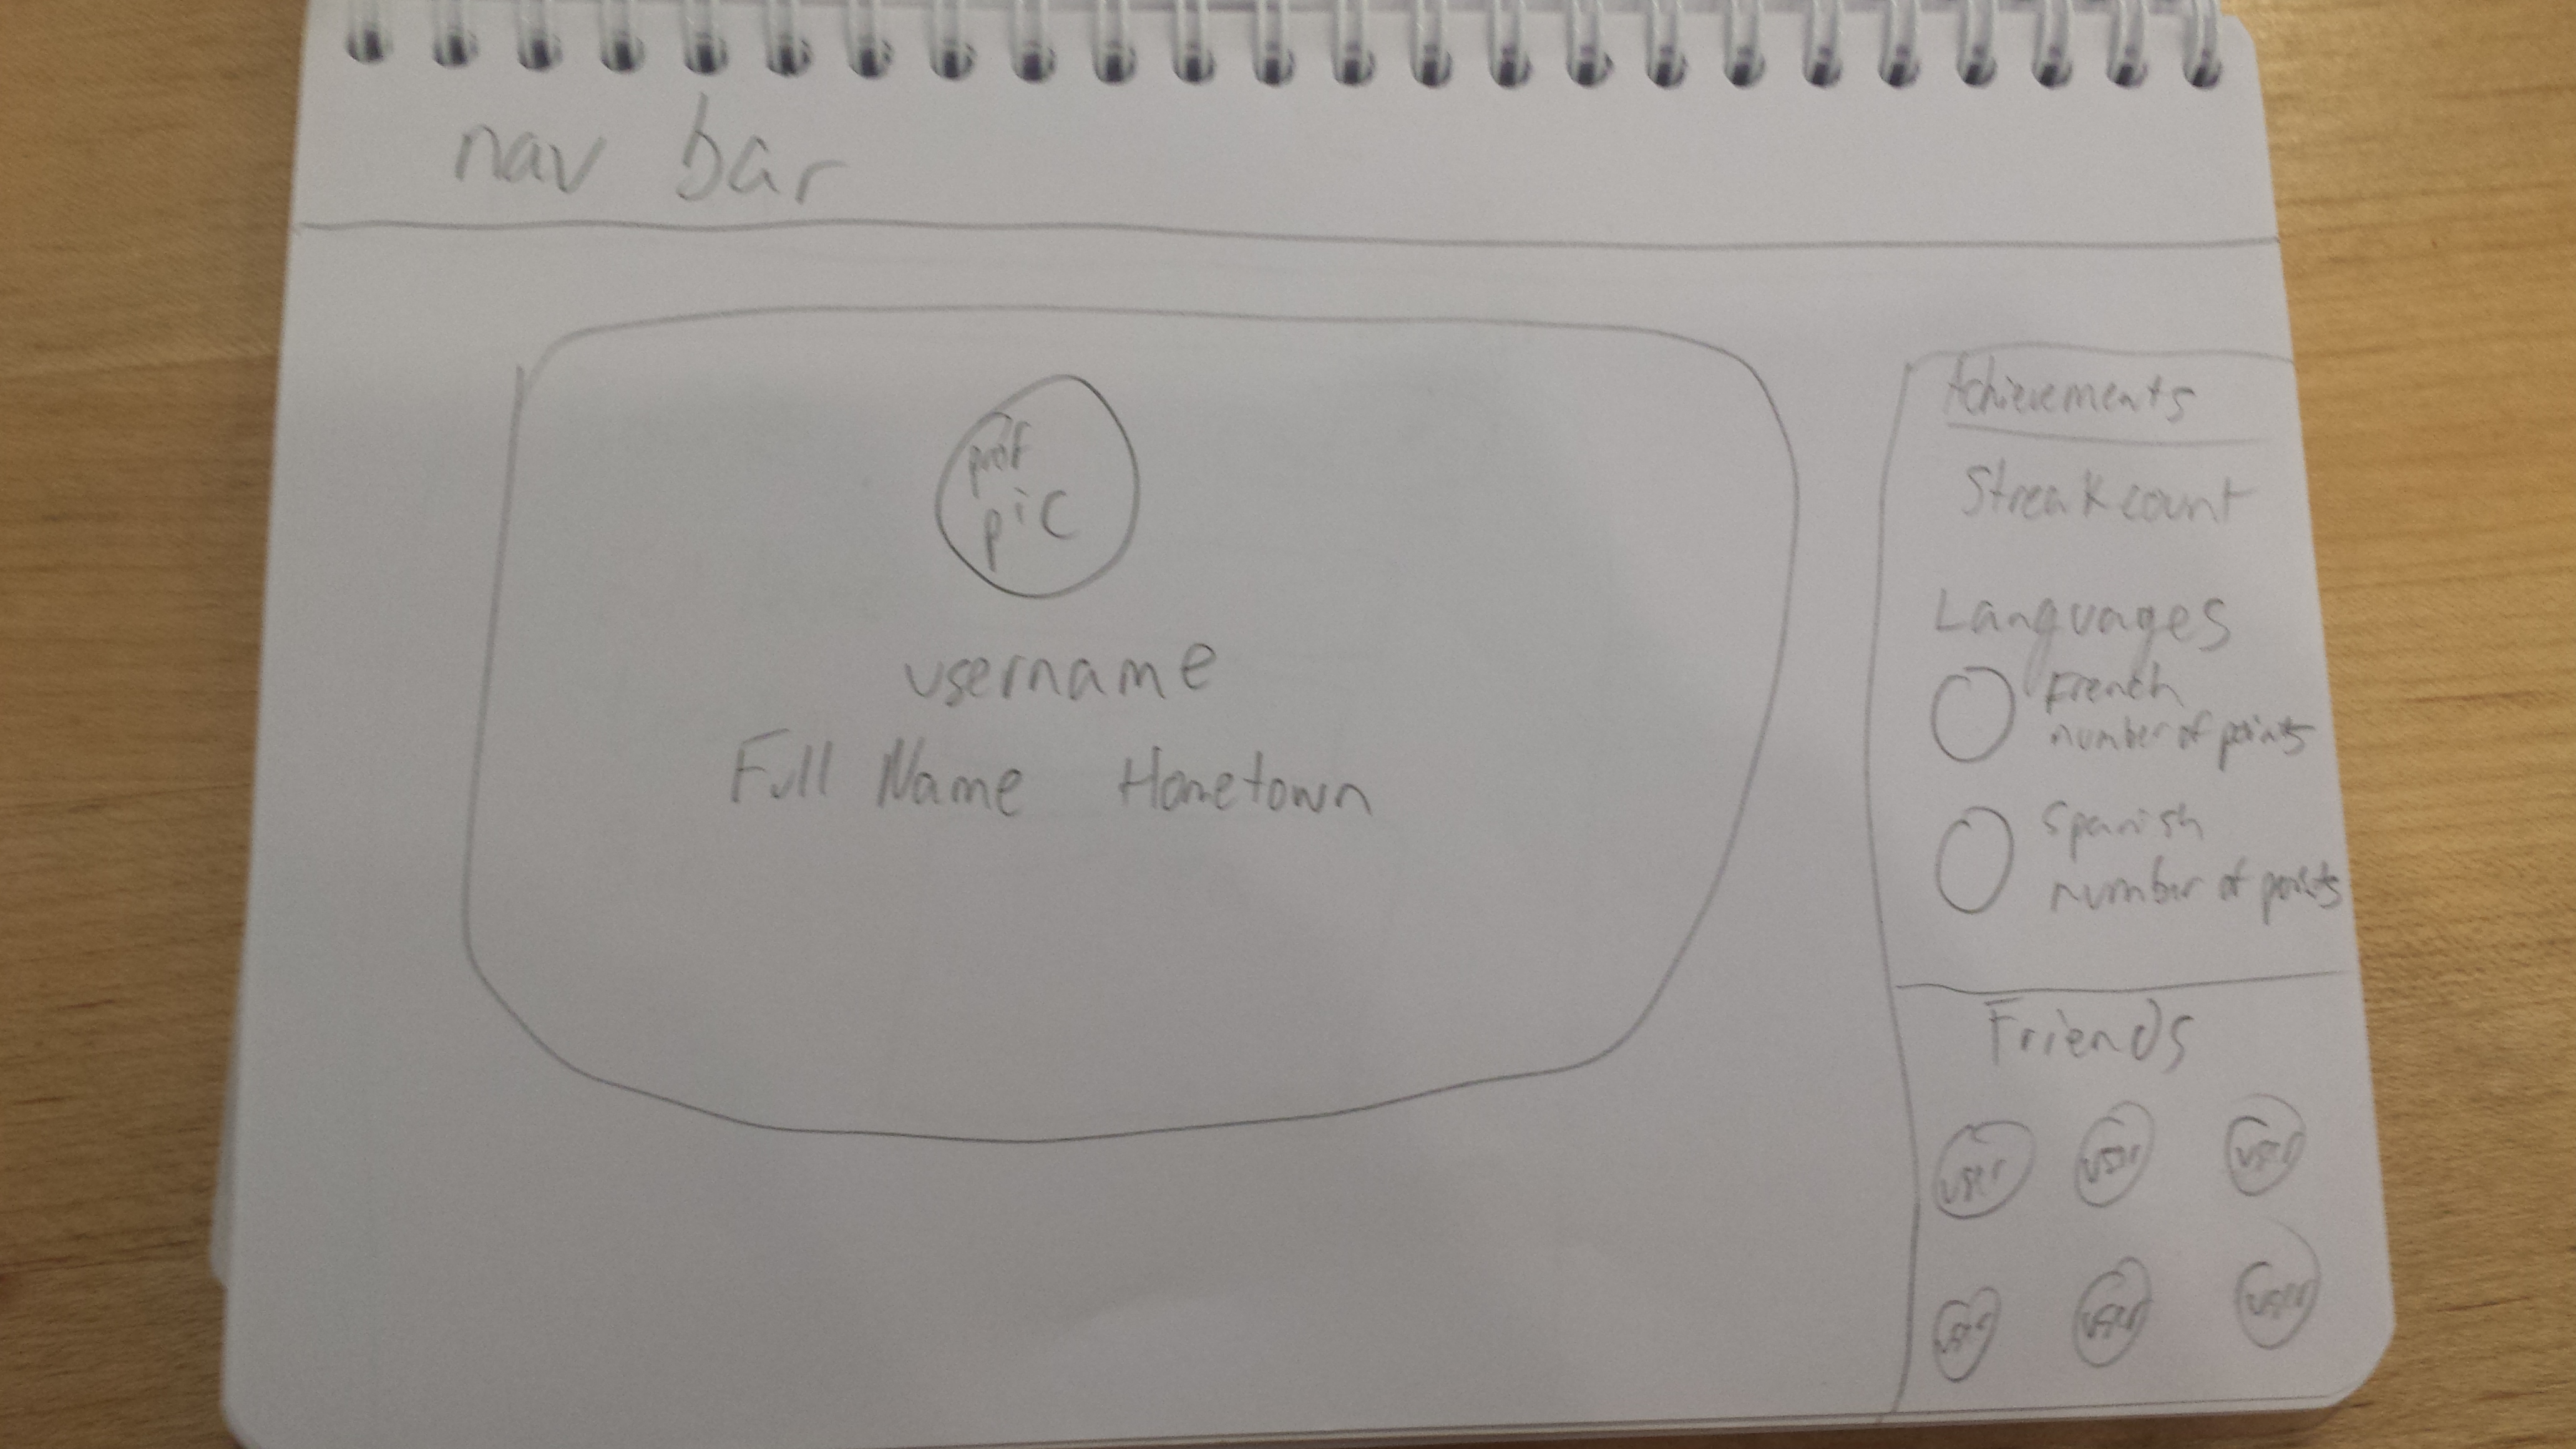 nav bar
prof
pic
username
Full Name Hometown
Achievements
Streak count
Languages
French
number of points
Spanish
number of points
Friends
user user user
user user user